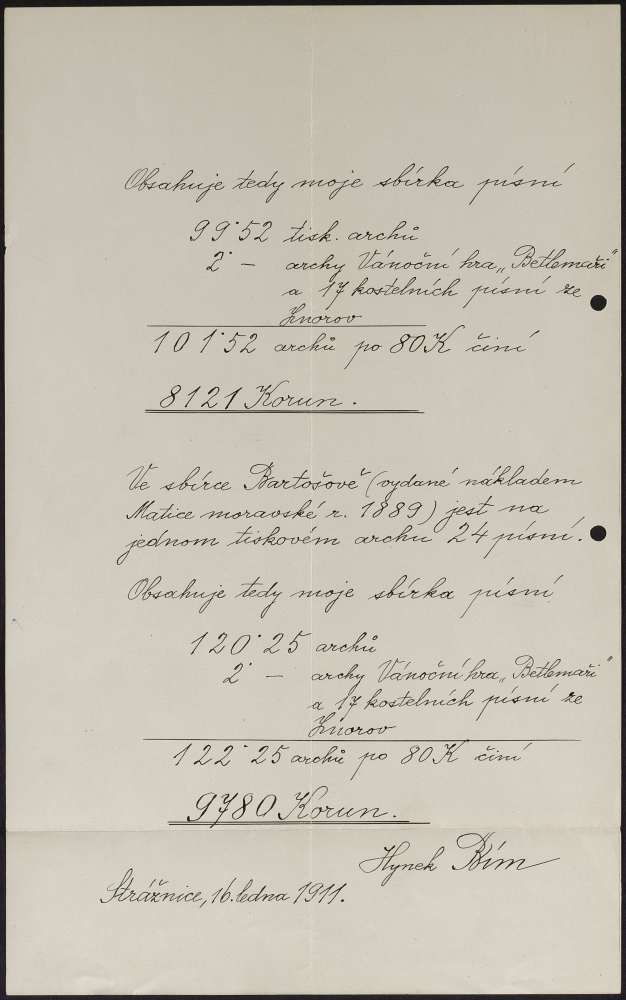 Obsahuje tedy moje sbírka písní
99˙52 tisk. archů
2˙ — archy Vánoční hra „Betlemáři“
a 17 kostelních písní ze
Znorov
101˙52 archů po 80 K činí
8121 Korun.
Ve sbírce Bartošově (vydané nákladem
Matice moravské r. 1889) jest na
jednom tiskovém archu 24 písní.
Obsahuje tedy moje sbírka písní
120˙25 archů
2˙ — archy Vánoční hra „Betlemáři“
a 17 kostelních písní ze
Znorov
122˙25 archů po 80 K činí
9780 Korun.
Hynek Bím
Strážnice, 16. ledna 1911.